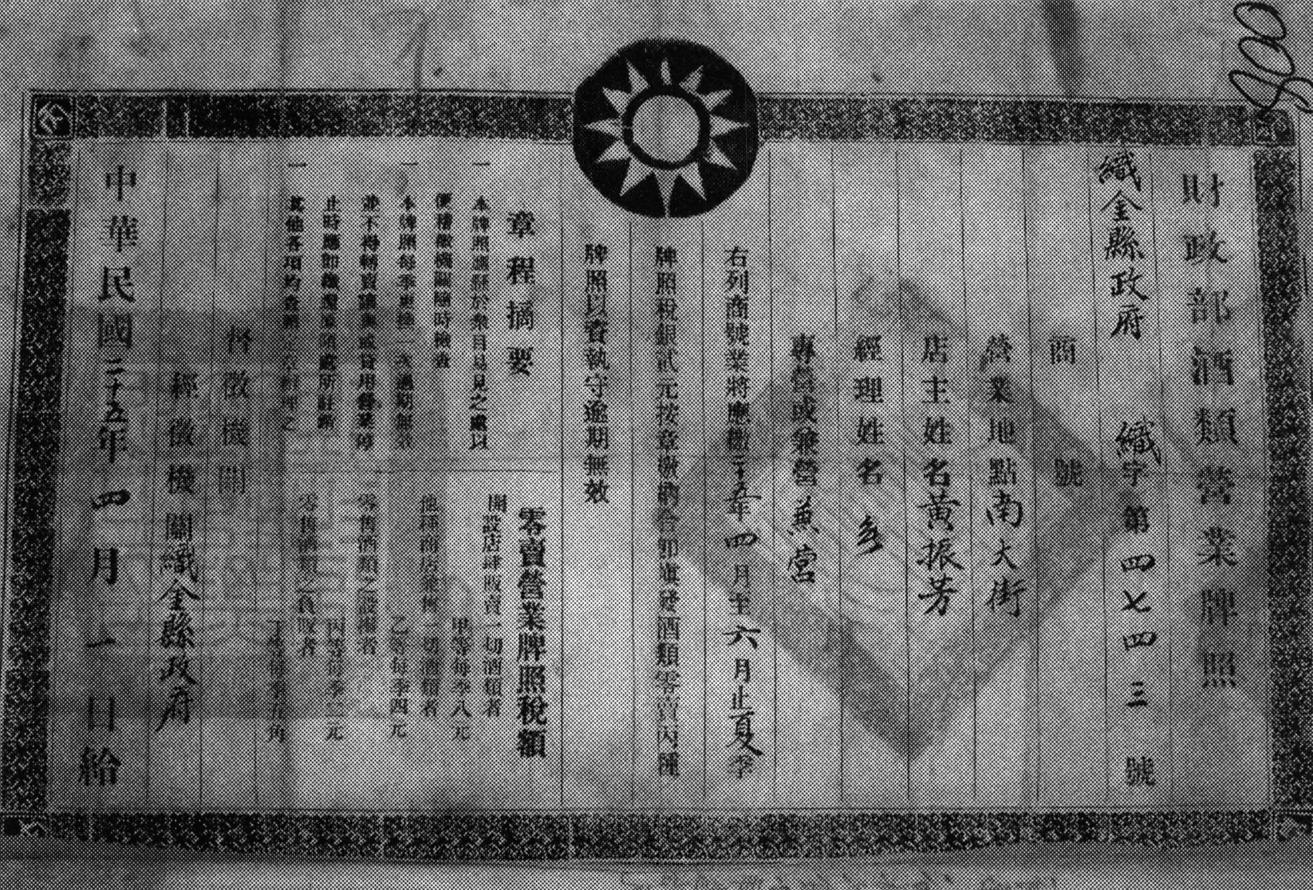 900
財政部酒類營業牌照
織金縣政府 織字第四七四三號
商號
營業地點南大街
店主姓名黃振芳
經理姓名
專營或兼營兼營
右列商號業將應繳二十五年四月至六月止夏季
牌照稅銀貳元按章繳納合卽塡發酒類零賣丙種
牌照以資執守逾期無效
章程摘要
一 本牌照應懸於衆目易見之處以
便稽徵機關隨時檢查
一 本牌照每季更換一次過期無效
並不得轉賣讓與或貸用各業停
止時應卽繳
一 其他各項均查照
零賣營業牌照稅額
開設店肆販賣一切酒類者
甲等每季八元
他種商店兼售一切酒類者
乙等每季四元
零售酒類之設攤者
丙等每季二元
零售酒類之負販者
丁等每季五角
督徵機關
經徵機關織金縣政府
中華民國二十五年四月一日給